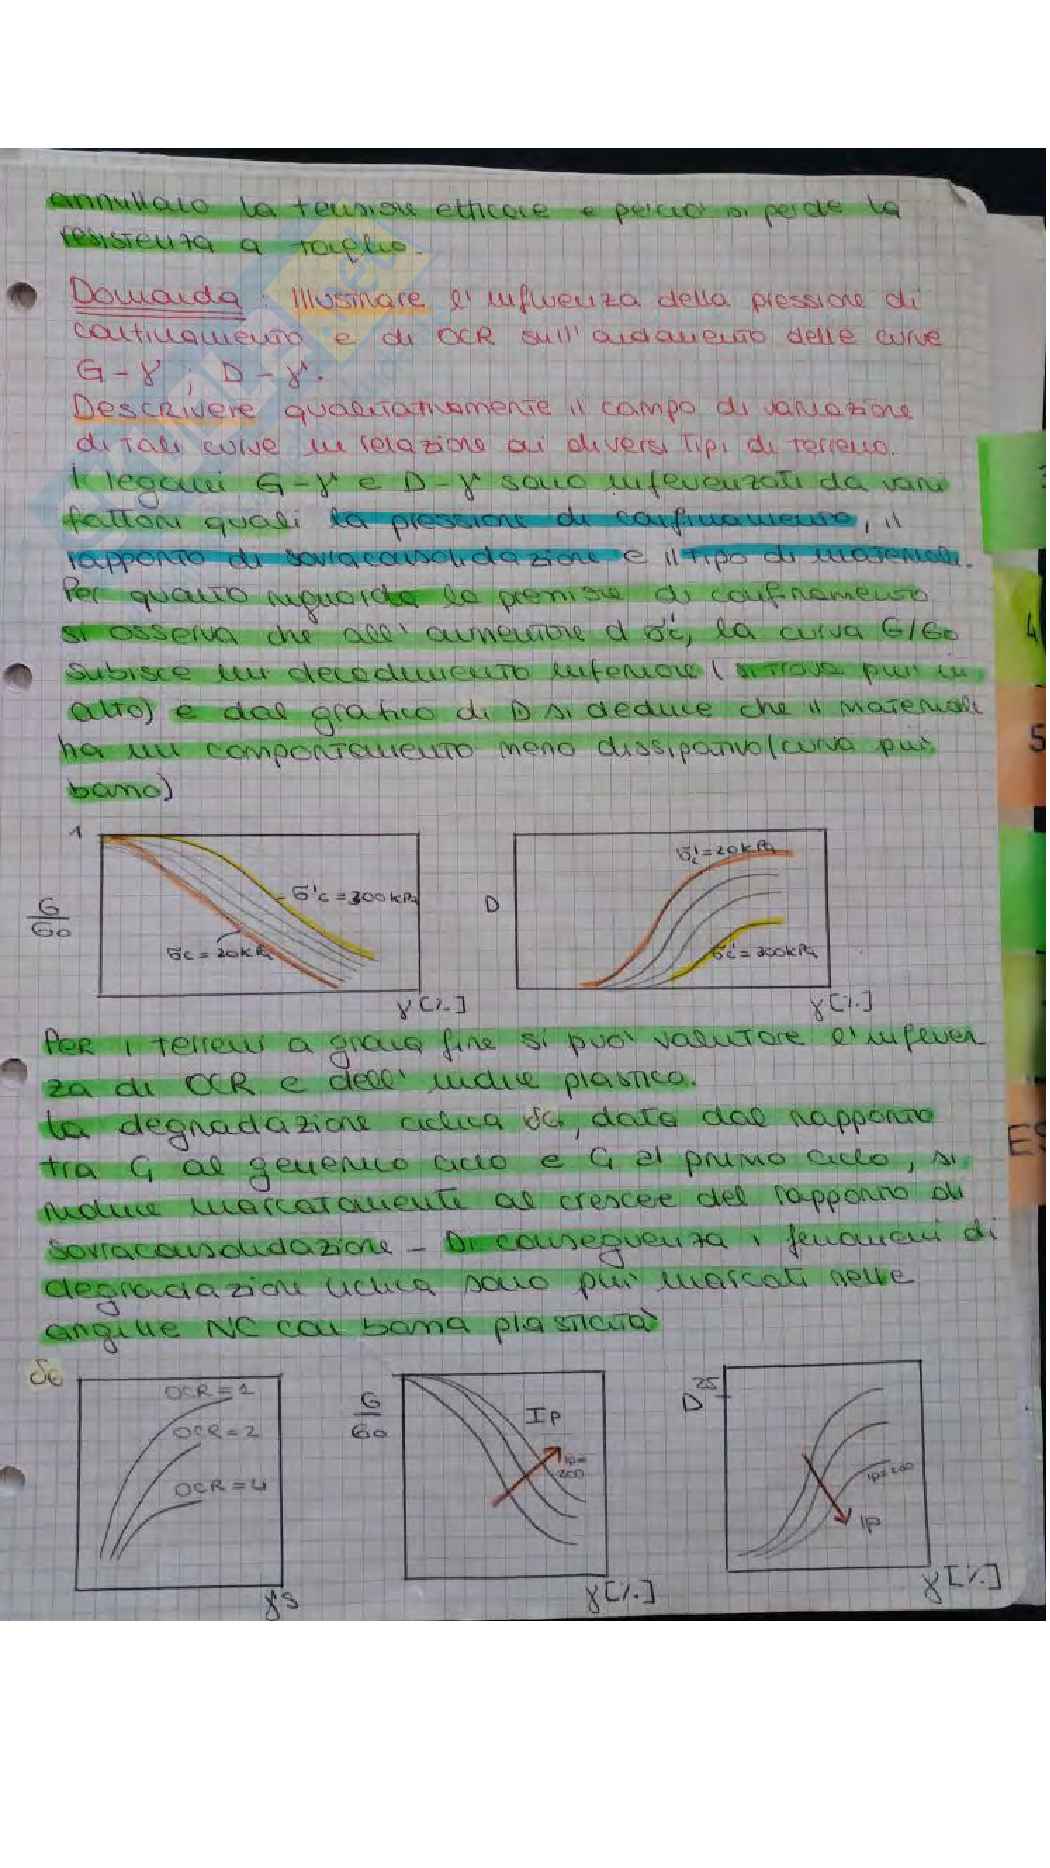 annullato la tensione efficace e perciò si perde la
resistenza a taglio.
Domanda: Illustrare l'influenza della pressione di
confinamento e di OCR sull'andamento delle curve
G-γ ; D-γ.
Descrivere qualitativamente il campo di variazione
di tali curve in relazione ai diversi tipi di terreno.
I legami G-γ e D-γ sono influenzati da vari
fattori quali la pressione di confinamento, il
rapporto di sovraconsolidazione e il tipo di materiale.
Per quanto riguarda la pressione di confinamento
si osserva che all'aumentare d σ'c, la curva G/G0
subisce un decadimento inferiore (si trova più in
alto) e dal grafico di D si deduce che il materiale
ha un comportamento meno dissipativo (curva più
bassa)
1
G/G0
σ'c = 300 kPa
σc = 20kPa
γ [%]
D
σ'c = 20 kPa
σ'c = 300 kPa
γ [%]
Per i terreni a grana fine si può valutare l'influen
za di OCR e dell'indice plastico.
La degradazione ciclica δG, data dal rapporto
tra G al generico ciclo e G al primo ciclo, si
riduce marcatamente al crescere del rapporto di
sovraconsolidazione - Di conseguenza i fenomeni di
degradazione ciclica sono più marcati nelle
argille NC con bassa plasticità
δG
OCR = 1
OCR = 2
OCR = 4
γs
G/G0
IP
IP=
200
γ [%]
D
25
IP=200
IP
γ [%]
4
5
ES